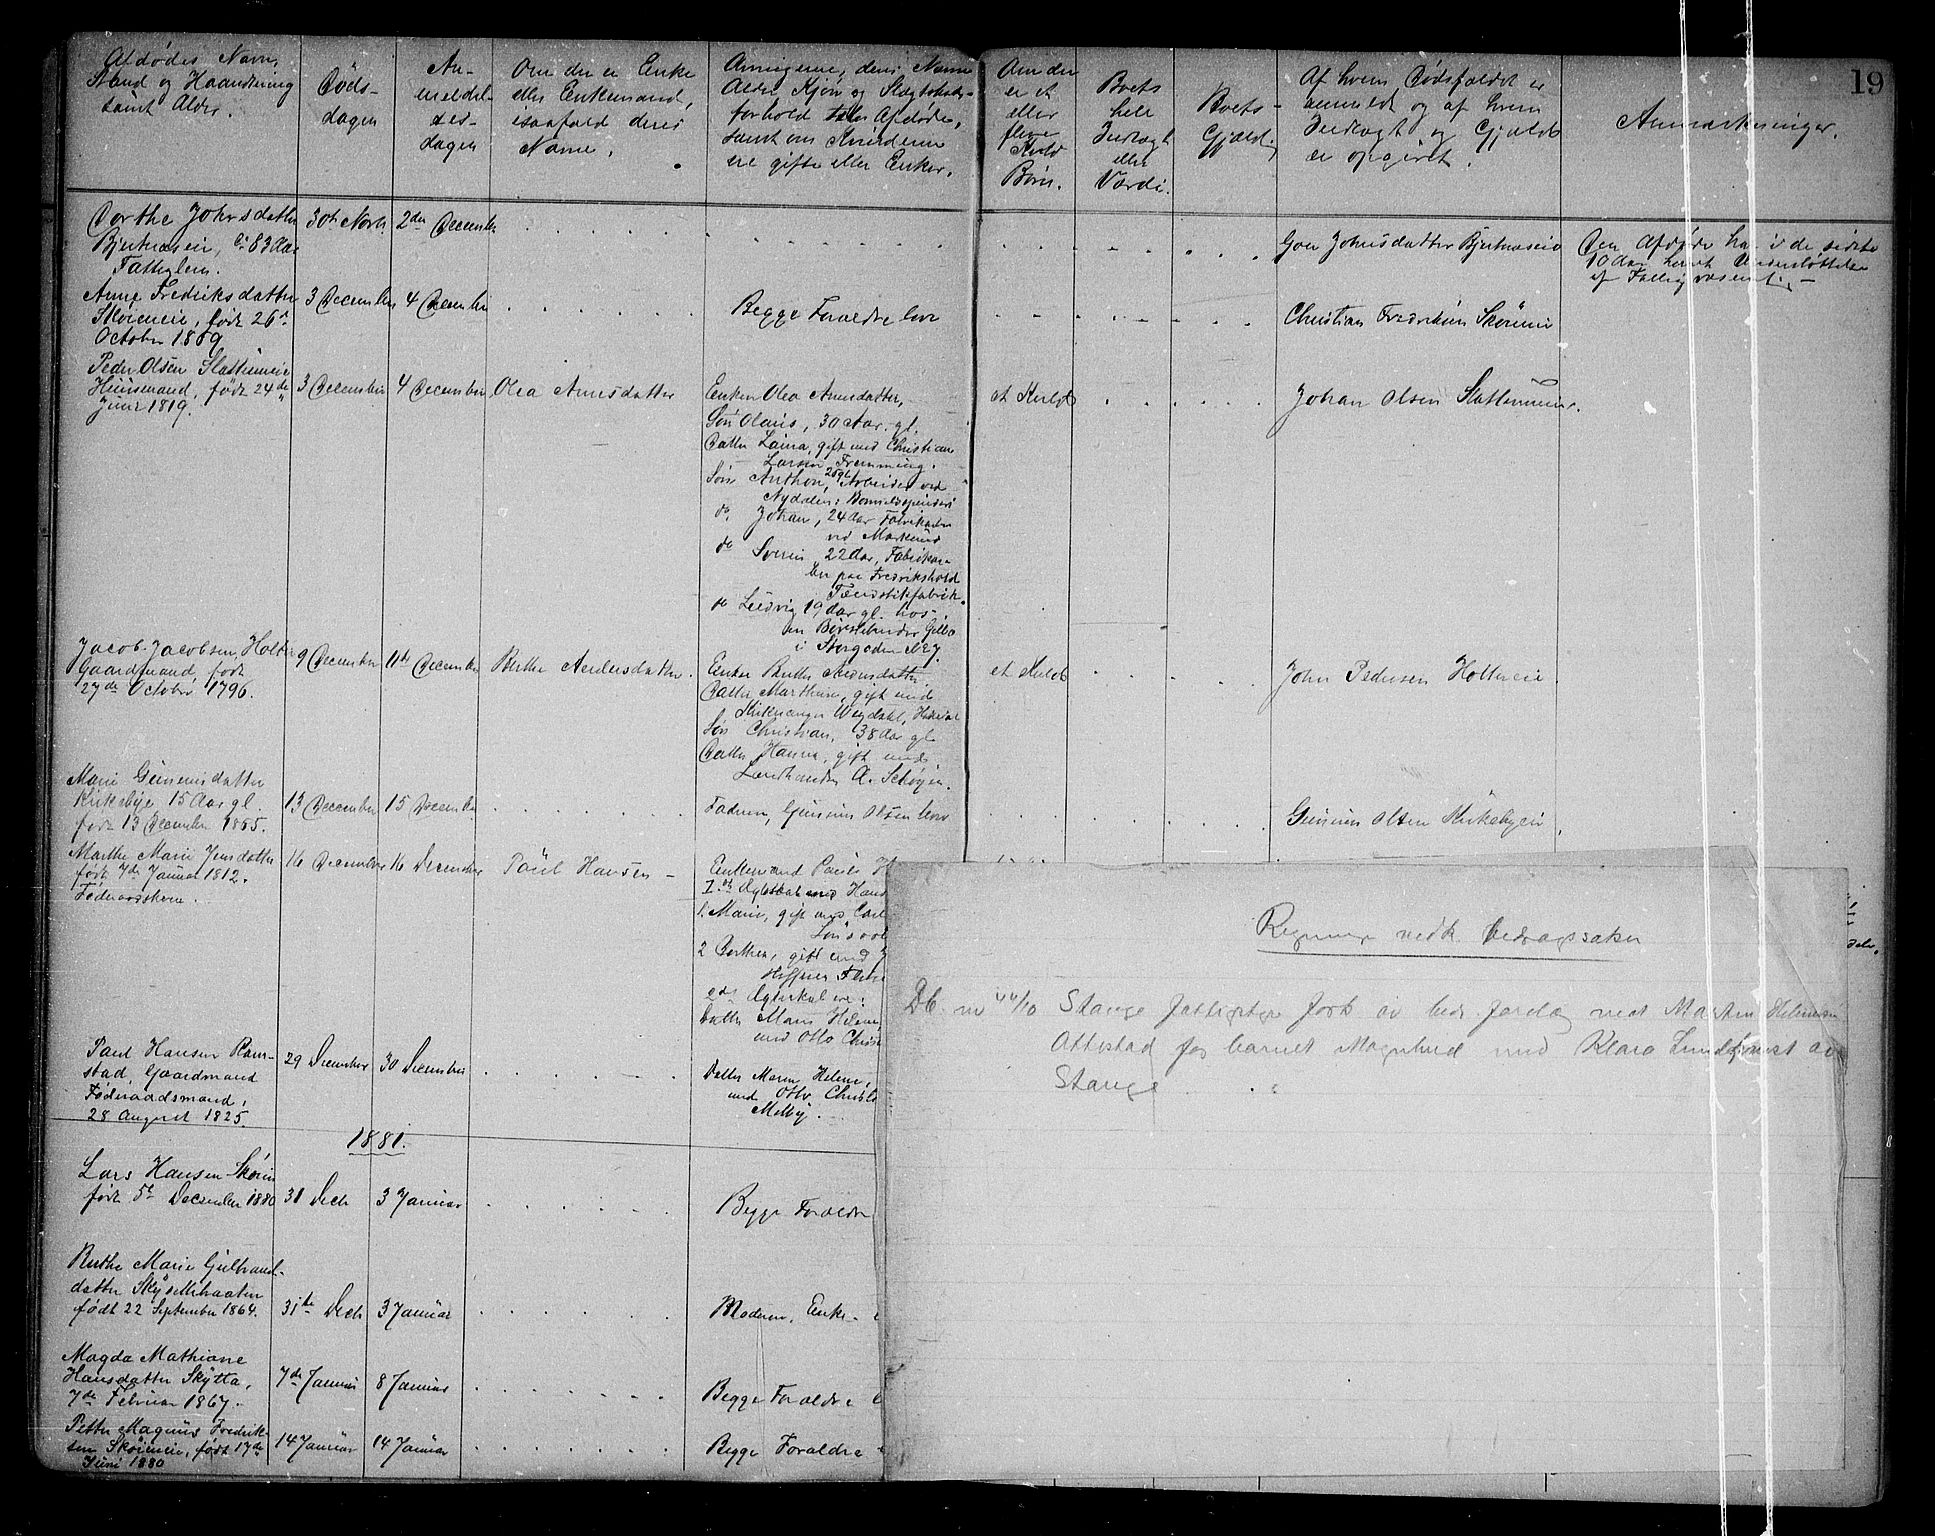 19
Afdødes Navn,
Stand og Haandtering
samt Alder.
Døds-
dagen
An-
meldel-
ses-
dagen
Om der er Enke
eller Enkemand,
isaafald deres
Navne.
Arvingerne, deres Navne
Alder Kjøn og Slægtskabs-
forhold til Afdøde,
samt om Kvinderne
ere gifte eller Enker.
Om der
er et
eller
flere
Kuld
Børn.
Boets
hele
Indtægt
eller
Værdi.
Boets
Gjæld.
Af hvem Dødsfaldet er
anmeldt og af hvem
Indtægt og Gjæld
er opgivet.
Anmærkninger.
Dorthe Johnsdatter
83 Aar
Fattiglem.
30te Novbr
2den December
Johnsdatter
Den Afdøde har i de sidste
10 Aar havt Understøttelse
af Fattigvæsenet. -
Anne Fredriksdatter
Skøieneie, født 26de
October 1869
3 December
4 December
Begge Forældre leve
Christian Fredriksen Skøieneie
Peder Olsen Slatteneie
Huusmand, født 24de
Juni 1819.
3 December
4 December
Olea Arnesdatter
Enken Olea Arnesdatter,
Søn Olaus, 30 Aar gl.
Datter Laura, gift med Christian
Larsen Fremming.
Søn Anthon, Arbeider ved
Nydalens Bomuldspinderi
do. Johan, 24 Aar Fabrikarb.
ved
do Severin 22 Aar, Fabrikar-
ber paa Fredrikshold
Tændstikfabrik.
do Ludvig 19 Aar gl. hos
en Børstebinder
i Storgaden No 7.
et Kuld
Johan Olsen Slatteneie.
Jacob Jacobsen Holter
Gaardmand, født
27de October 1796.
9 December
11te December
Berthe Andersdatter.
Enken Berthe Andersdatter
Datter Marthea, gift med
Kirkesanger Weydahl,
Søn Christian, 38 Aar gl
Datter Hanna, gift med
Landhandler A. Schøyen.
et Kuld
John Pedersen Holtereie
Marie Gunnersdatter
Kirkebye, 15 Aar gl.
født 13 December 1865.
13 December
15 December
Faderen, Gunnus Olsen lever
Gunnus Olsen Kirkebyeie
Marthe Marie Jensdatter
født 7de Januar 1812.
Føderaadskone.
16 December
16 December
Paul Hansen -
Enkemand Pauls H
1ste Ægteskab med Hans
1. Marie, gift med Carl
2 Dorthea, gift med
2det Ægteskab ere:
Datter Maren Helene,
med Otto Christ
Paul Hansen Ram-
stad, Gaardmand
Føderaadsmand,
28 August 1825.
29 December
30 December
Datter Maren Helene,
med Otto Christ
Melby.
1881.
Lars Hansen Skøien
født 5te December 1880
31 Decbr
3 Januar
Begge Forældre
Berthe Marie Gulbrands-
datter Skÿsethraaten
født 22 September 1864.
31te Decbr
3 Januar
Moderen, Enke
Magda Mathiane
Hansdatter Skÿtta,
7de Februar 1867.
7de Januar
8 Januar
Begge Forældre
Petter Magnus Fredrik-
sen Skøieneie, født 17de
Juni 1880
14 Januar
14 Januar
Begge Forældre
Regninger vedk. bedragssaker
Db. nr 44/10 Stange fattigstyr fork av bidr. foreløg mot Martin
Ottestad for barnet Magnhild med Klara Lundkvist av
Stange